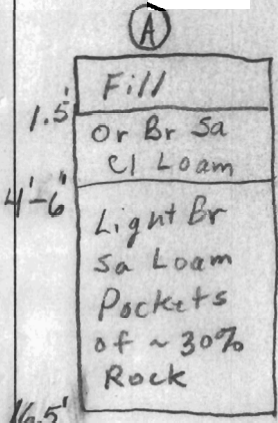 A
Fill
1.5'
Or Br Sa
Cl Loam
4'-6'
Light Br
Sa Loam
Pockets
of ~ 30%
Rock
16.5'